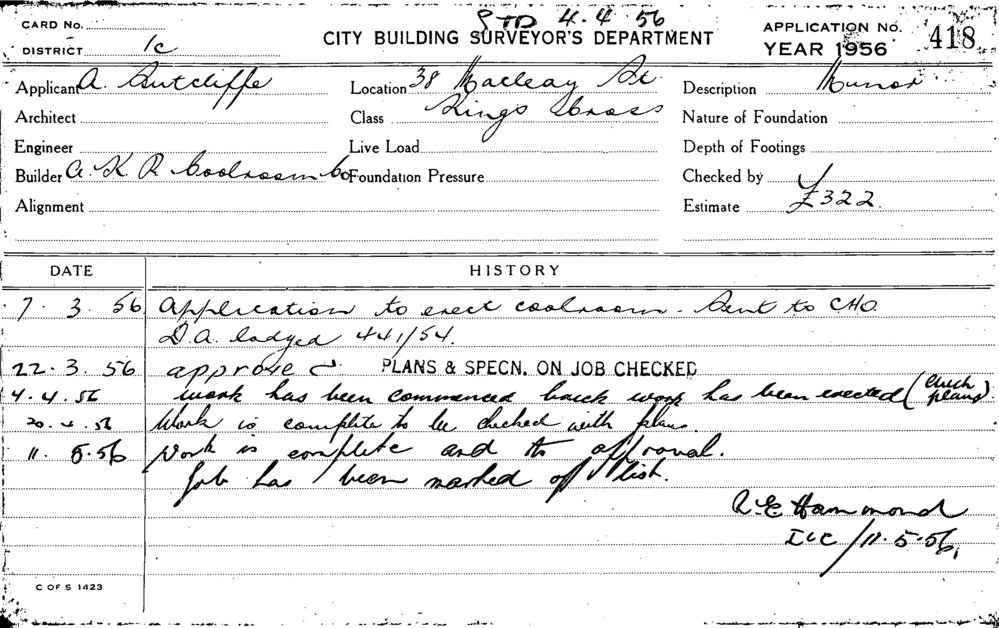 STD 4.4.56
CARD No.
DISTRICT 1c
CITY BUILDING SURVEYOR'S DEPARTMENT
APPLICATION No. 418
YEAR 1956
Applicant A. Sutcliffe Location 38 Macleay St Description Minor
Architect Class Kings Cross Nature of Foundation
Engineer Live Load Depth of Footings
Builder A. K. R. Coolroom Co Foundation Pressure Checked by
Alignment Estimate £322.
DATE HISTORY
7. 3. 56 Application to erect coolroom. Sent to CHO.
D.A. lodged 441/54.
22. 3. 56 approved PLANS & SPECN. ON JOB CHECKED
4.4.56 work has been commenced brick work has been erected (check plans)
20. 4. 56 Work is complete to be checked with plans.
11. 5. 56 Work is complete and to approval.
Job has been marked off list.
R.E Hammond
11.5.56.
C OF S 1423